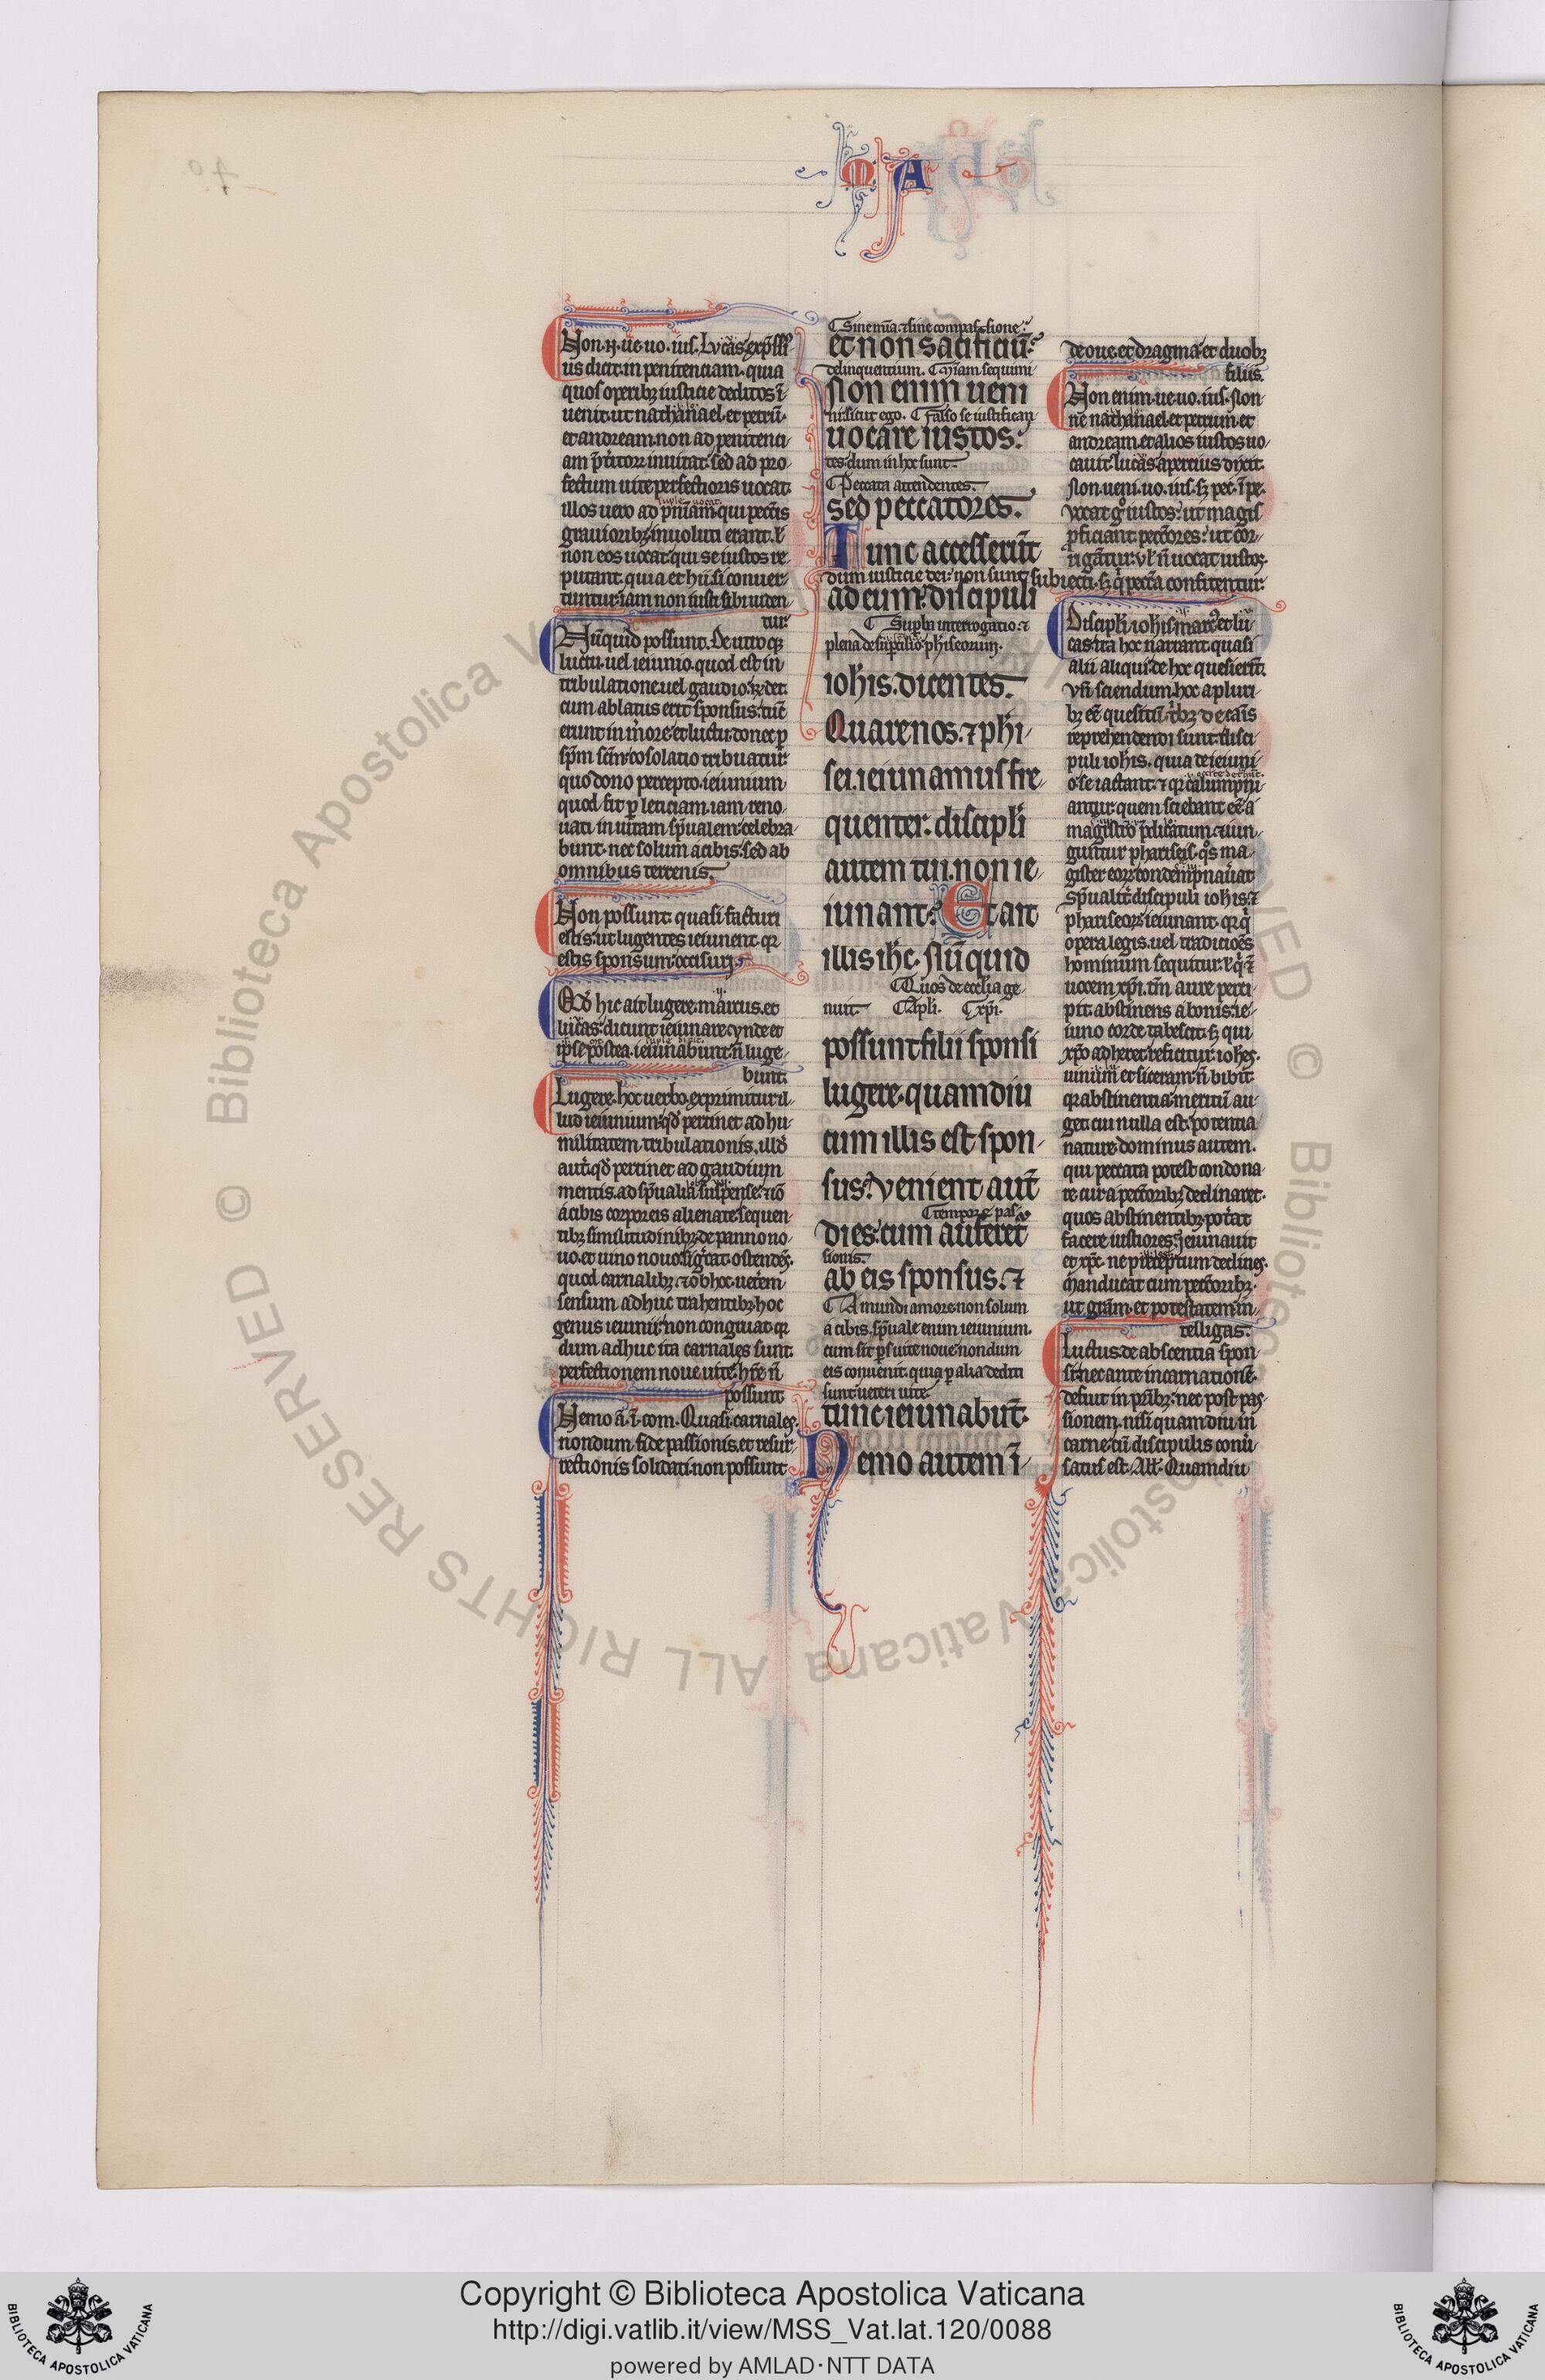 M A
Non .n. ue. uo. ius. Lucas expssi
us dicit. in penitenciam. quia
quos operibꝫ iusticie deditos ī
uenit. ut nathanael. et petrū.
et andream. non ad peniten
am
inuitat. sed ad pro
fectum uite perfectioris uocat.
illos uero ad pniam qui pecc̄is
grauioribꝫ inuoluti erant. ł
non eos uocat qui se iustos re
putant. quia et hii si conuer
tuntur iam non iusti sibi uiden
tur.
Nūquid possunt. De utroqꝫ
luctu. uel ieiunio. quod est in
tribulatione. uel gaudio.
cum ablatus erit sponsus. tūc
erunt in mrore. et luctu. donec ꝑ
sp̄m sc̄m cosolatio tribuatur.
quo dono percepto. ieiunium
quod fit ꝑ leticiam. iam reno
uati in uitam sp̄ualem. celebra
bunt. nec solum a cibis. sed ab
omnibus terrenis.
Non possunt. quasi facturi
estis. ut lugentes ieiunent qr
estis sponsum occisuri.
Qđ hic ait lugere. marcus. et
lucas. dicunt ieiunare. vnde et
ipse postea. ieiunabunt. n̄ luge
bunt.
Lugere. hoc uerbo exprimitur il
lud ieiunium. qđ pertinet ad hu
militatem tribulationis. illđ
aut̄. qđ pertinet ad gaudium
mentis. ad sp̄ualia suspense.
a cibis corporeis alienate. sequen
tibꝫ similitudinibꝫ de panno no
uo. et uino nouo. sig̃cat. ostendēs.
quod carnalibꝫ
sensum adhuc trahentibꝫ hoc
genus ieiunii. non congruat. qr
dum adhuc ita carnales sunt.
perfectionem noue uite. hr̄e n̄
possunt
Nemo ā. ī. com. Quasi carnales.
nondum fide passionis. et resur
rectionis solidati. non possunt
Sine mīa. ⁊ sine compassione.
et non sacrificiū.
delinquentium.
Non enim ueni
nisi sicut ego. Falso se iustifican
uocare iustos.
tes. dum in hoc sunt.
Peccata attendentes.
sed peccatores.
Tunc accesserūt
dum iusticie dei non sunt subiecti. sꝫ qꝰ pecc̄a confitentur.
ad eum. discipuli
Supba interrogatio. ⁊
plena de phiseorum.
ioh̄is. dicentes.
Quare nos. ⁊ phi
sei. ieiunamus fre
quenter. discipl̄i
autem tui. non ie
iunant. Et ait
illis ih̄c. Nūquid
Quos de ecclia ge
nuit. Apli. xp̄i.
possunt filii sponsi
lugere. quamdiu
cum illis est spon
sus. Venient aut̄
tempore pas
dies. cum auferet̄
sionis.
ab eis sponsus. ⁊
A mundi amore. non solum
a cibis. sp̄uale enim ieiunium.
cum sit ꝑs uite noue. nondum
eis conuenit. quia ꝑ alia dediti
sunt ueteri uite.
tunc ieiunabūt.
Nemo autem ī
de oue. et dragma. et duobꝫ
filiis.
Non enim. ue. uo. ius. Non
ne nathanael. et petrum. et
andream. et alios iustos uo
cauit. lucas apertius dixit.
Non ueni. uo. ius. sꝫ pec. ī pe.
Vocat gͦ iustos. ut magis
ꝓficiant. pecc̄ores. ut cor
rigātur. vl̄ n̄ uocat iustos.
Discipl̄i ioh̄is. marc̄. et lu
cas. ita hoc narrant quasi
alii aliqui. de hoc quesierīt.
Vn̄ sciendum. hoc a pluri
bꝫ eē quesitū.
reprehendendi sunt. disci
puli ioh̄is. quia de ieiuni
o se iactant. ⁊ qr calumpni
antur. quem sciebant eē a
magistro p̄dicatum. ⁊ iun
guntur phariseis. qͦs ma
gister eorꝫ condempnauat
sp̄ualit̄. discipuli ioh̄is. ⁊
phariseorꝫ ieiunant. qr q̇
opera legis. uel tradicioēs
hominum sequitur.
uocem xp̄i. tm̄ aure perci
pit. abstinens a bonis. ie
iuno corde tabescit. sꝫ qui
xp̄o adheret. reficitur. ioh̄es.
uinum et siceram. n̄ bibit.
qr abstinentia. meritū au
get. cui nulla est. potentia
nature. dominus autem.
qui peccata potest condona
re. cur a pecc̄oribꝫ declinaret.
quos abstinentibꝫ pot̄at
facere iustiores. Ieiunauit
et xp̄c. ne preceptum declines.
Manducat cum pecc̄oribꝫ.
ut grām. et potestatem in
telligas.
Luctus. de abscentia spon
si. nec ante incarnationē.
defuit in pr̄ibꝫ. nec post pas
sionem. nisi quamdiu in
carne. cū discipulis conu̾
satus est. Quamdiu
Copyright © Biblioteca Apostolica Vaticana
http://digi.vatlib.it/view/MSS_Vat.lat.120/0088
powered by AMLAD·NTT DATA
BIBLIOTECA APOSTOLICA VATICANA
BIBLIOTECA APOSTOLICA VATICANA
© Biblioteca Apostolica Vaticana ALL RIGHTS RESERVED